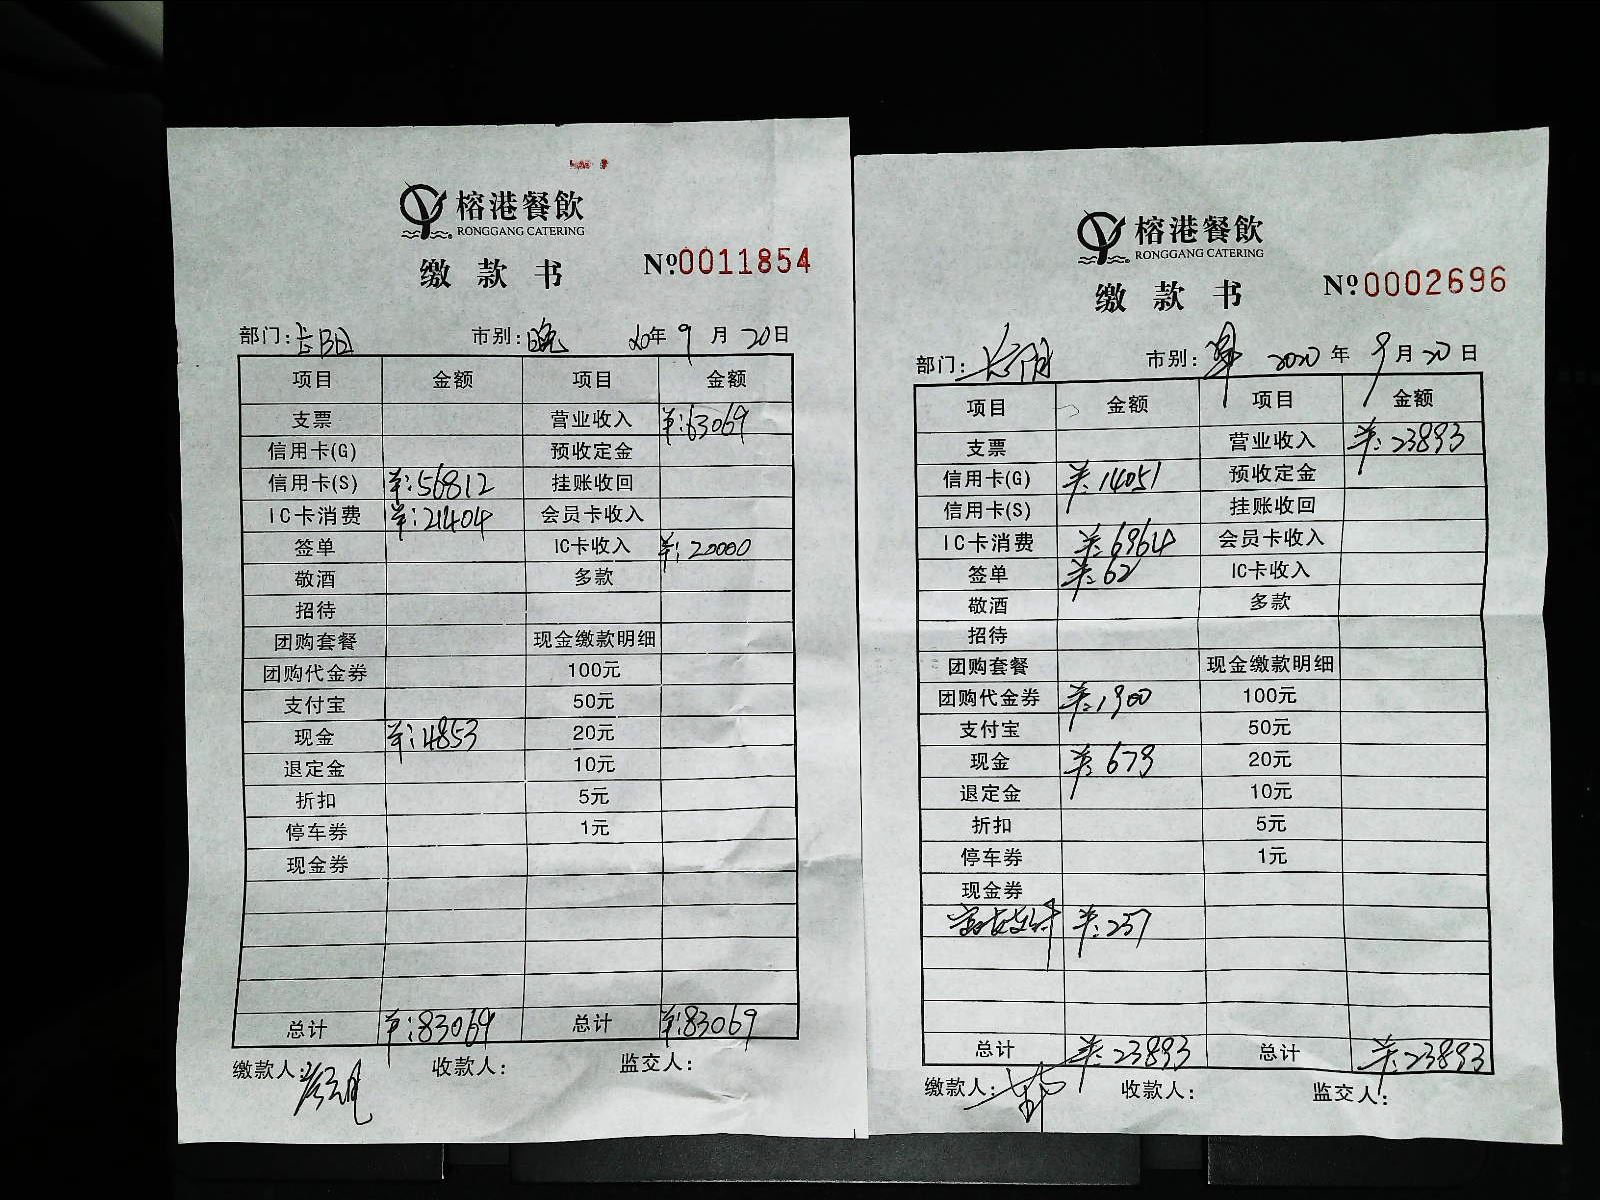 榕港餐飲
RONGGANG CATERING
缴款书
№0011854
部门: 市别:晚 20年9月20日
项目 金额 项目 金额
支票 营业收入 羊:63069
信用卡(G) 预收定金
信用卡(S) 羊:56812 挂账收回
IC卡消费 羊:21404 会员卡收入
签单 IC卡收入 羊:20000
敬酒 多款
招待
团购套餐 现金缴款明细
团购代金券 100元
支付宝 50元
现金 羊:4853 20元
退定金 10元
折扣 5元
停车券 1元
现金券
总计 羊:83069 总计 羊:83069
缴款人: 收款人: 监交人:
榕港餐飲
RONGGANG CATERING
缴款书
№0002696
部门: 市别: 2020年9月20日
项目 金额 项目 金额
支票 营业收入 羊:23893
信用卡(G) 羊:14051 预收定金
信用卡(S) 挂账收回
IC卡消费 羊:6964 会员卡收入
签单 羊:62 IC卡收入
敬酒 多款
招待
团购套餐 现金缴款明细
团购代金券 羊:1900 100元
支付宝 50元
现金 羊:679 20元
退定金 10元
折扣 5元
停车券 1元
现金券
羊:237
总计 羊:23893 总计 羊:23893
缴款人: 收款人: 监交人: